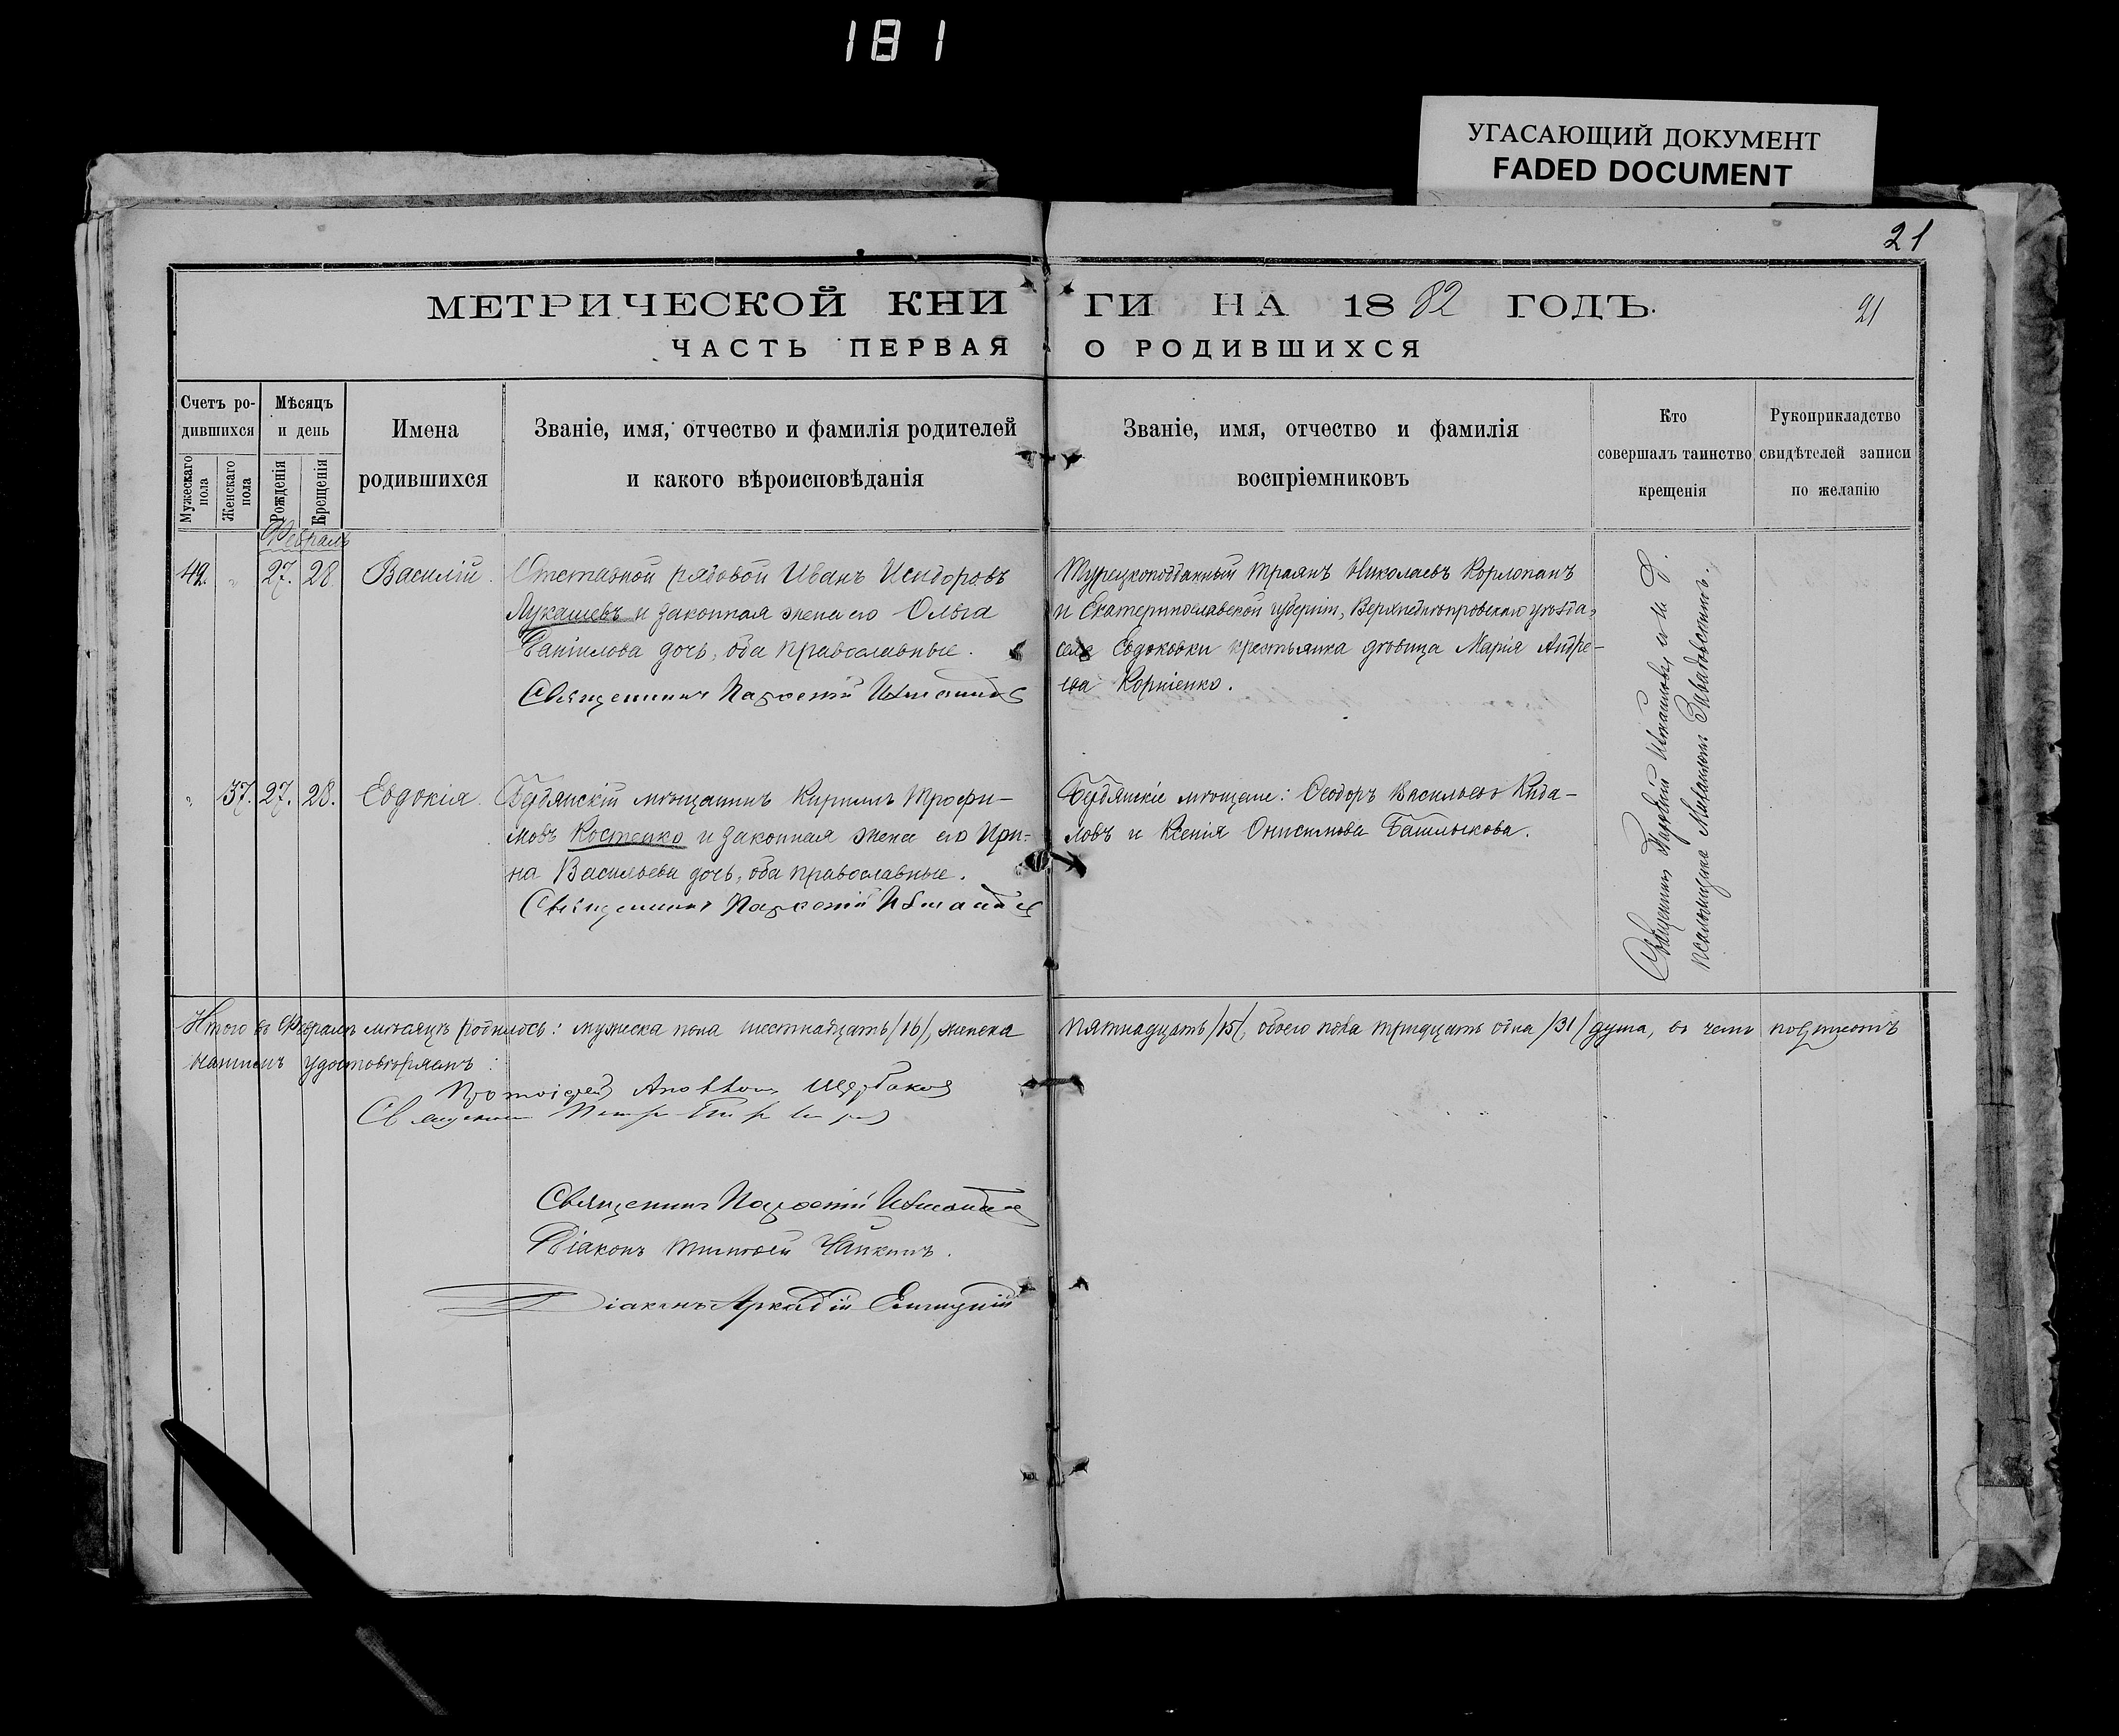 181
УГАСАЮЩИЙ ДОКУМЕНТ
FADED DOCUMENT
21
МЕТРИЧЕСКОЙ КНИГИ НА 1882 ГОДЪ.
21
ЧАСТЬ ПЕРВАЯ О РОДИВШИХСЯ
Счетъ родившихся
Мужескаго пола
Женскаго пола
Мѣсяцъ и день
Рожденія
Крещенія
Имена
родившихся
Званіе, имя, отчество и фамилія родителей
и какого вѣроисповѣданія
Званіе, имя, отчество и фамилія
воспріемниковъ
Кто
совершалъ таинство
крещенія
Рукоприкладство
свидѣтелей записи
по желанію
Февраль
42. " 27. 28. Василій.
Отставной рядовой Иванъ Исидоровъ
Лукашевъ и законная жена его Ольга
Даніилова дочь, оба православные.
Священникъ
Турецкоподданный Траянъ Николаевъ
и Екатеринославской губерніи, Верхнеднепровскаго уѣзда,
села Евдоковки крестьянка дѣвица Марія Андре-
ева Корніенко.
" 37. 27. 28. Евдокія.
Бердянскій мѣщанинъ Кириллъ Трофи-
мовъ Костенко и законная жена его Ири-
на Васильева дочь, оба православные.
Священникъ
Бердянскіе мѣщане: Ѳеодоръ Васильевъ Кида-
ловъ и Ксенія Онисимова Башлыкова.
Священникъ
псаломщикъ Завадовскимъ.
Итого въ Февралѣ мѣсяцѣ родилось: мужеска пола шестнадцать /16/, женска пятнадцать /15/, обоего пола тридцать одна /31/ душа, въ чемъ подписомъ
нашимъ удостовѣряемъ:
Протоіерей Щербаковъ
Священникъ Петръ
Священникъ
Діаконъ Тимоѳей Чайкинъ.
Діаконъ Аркадій